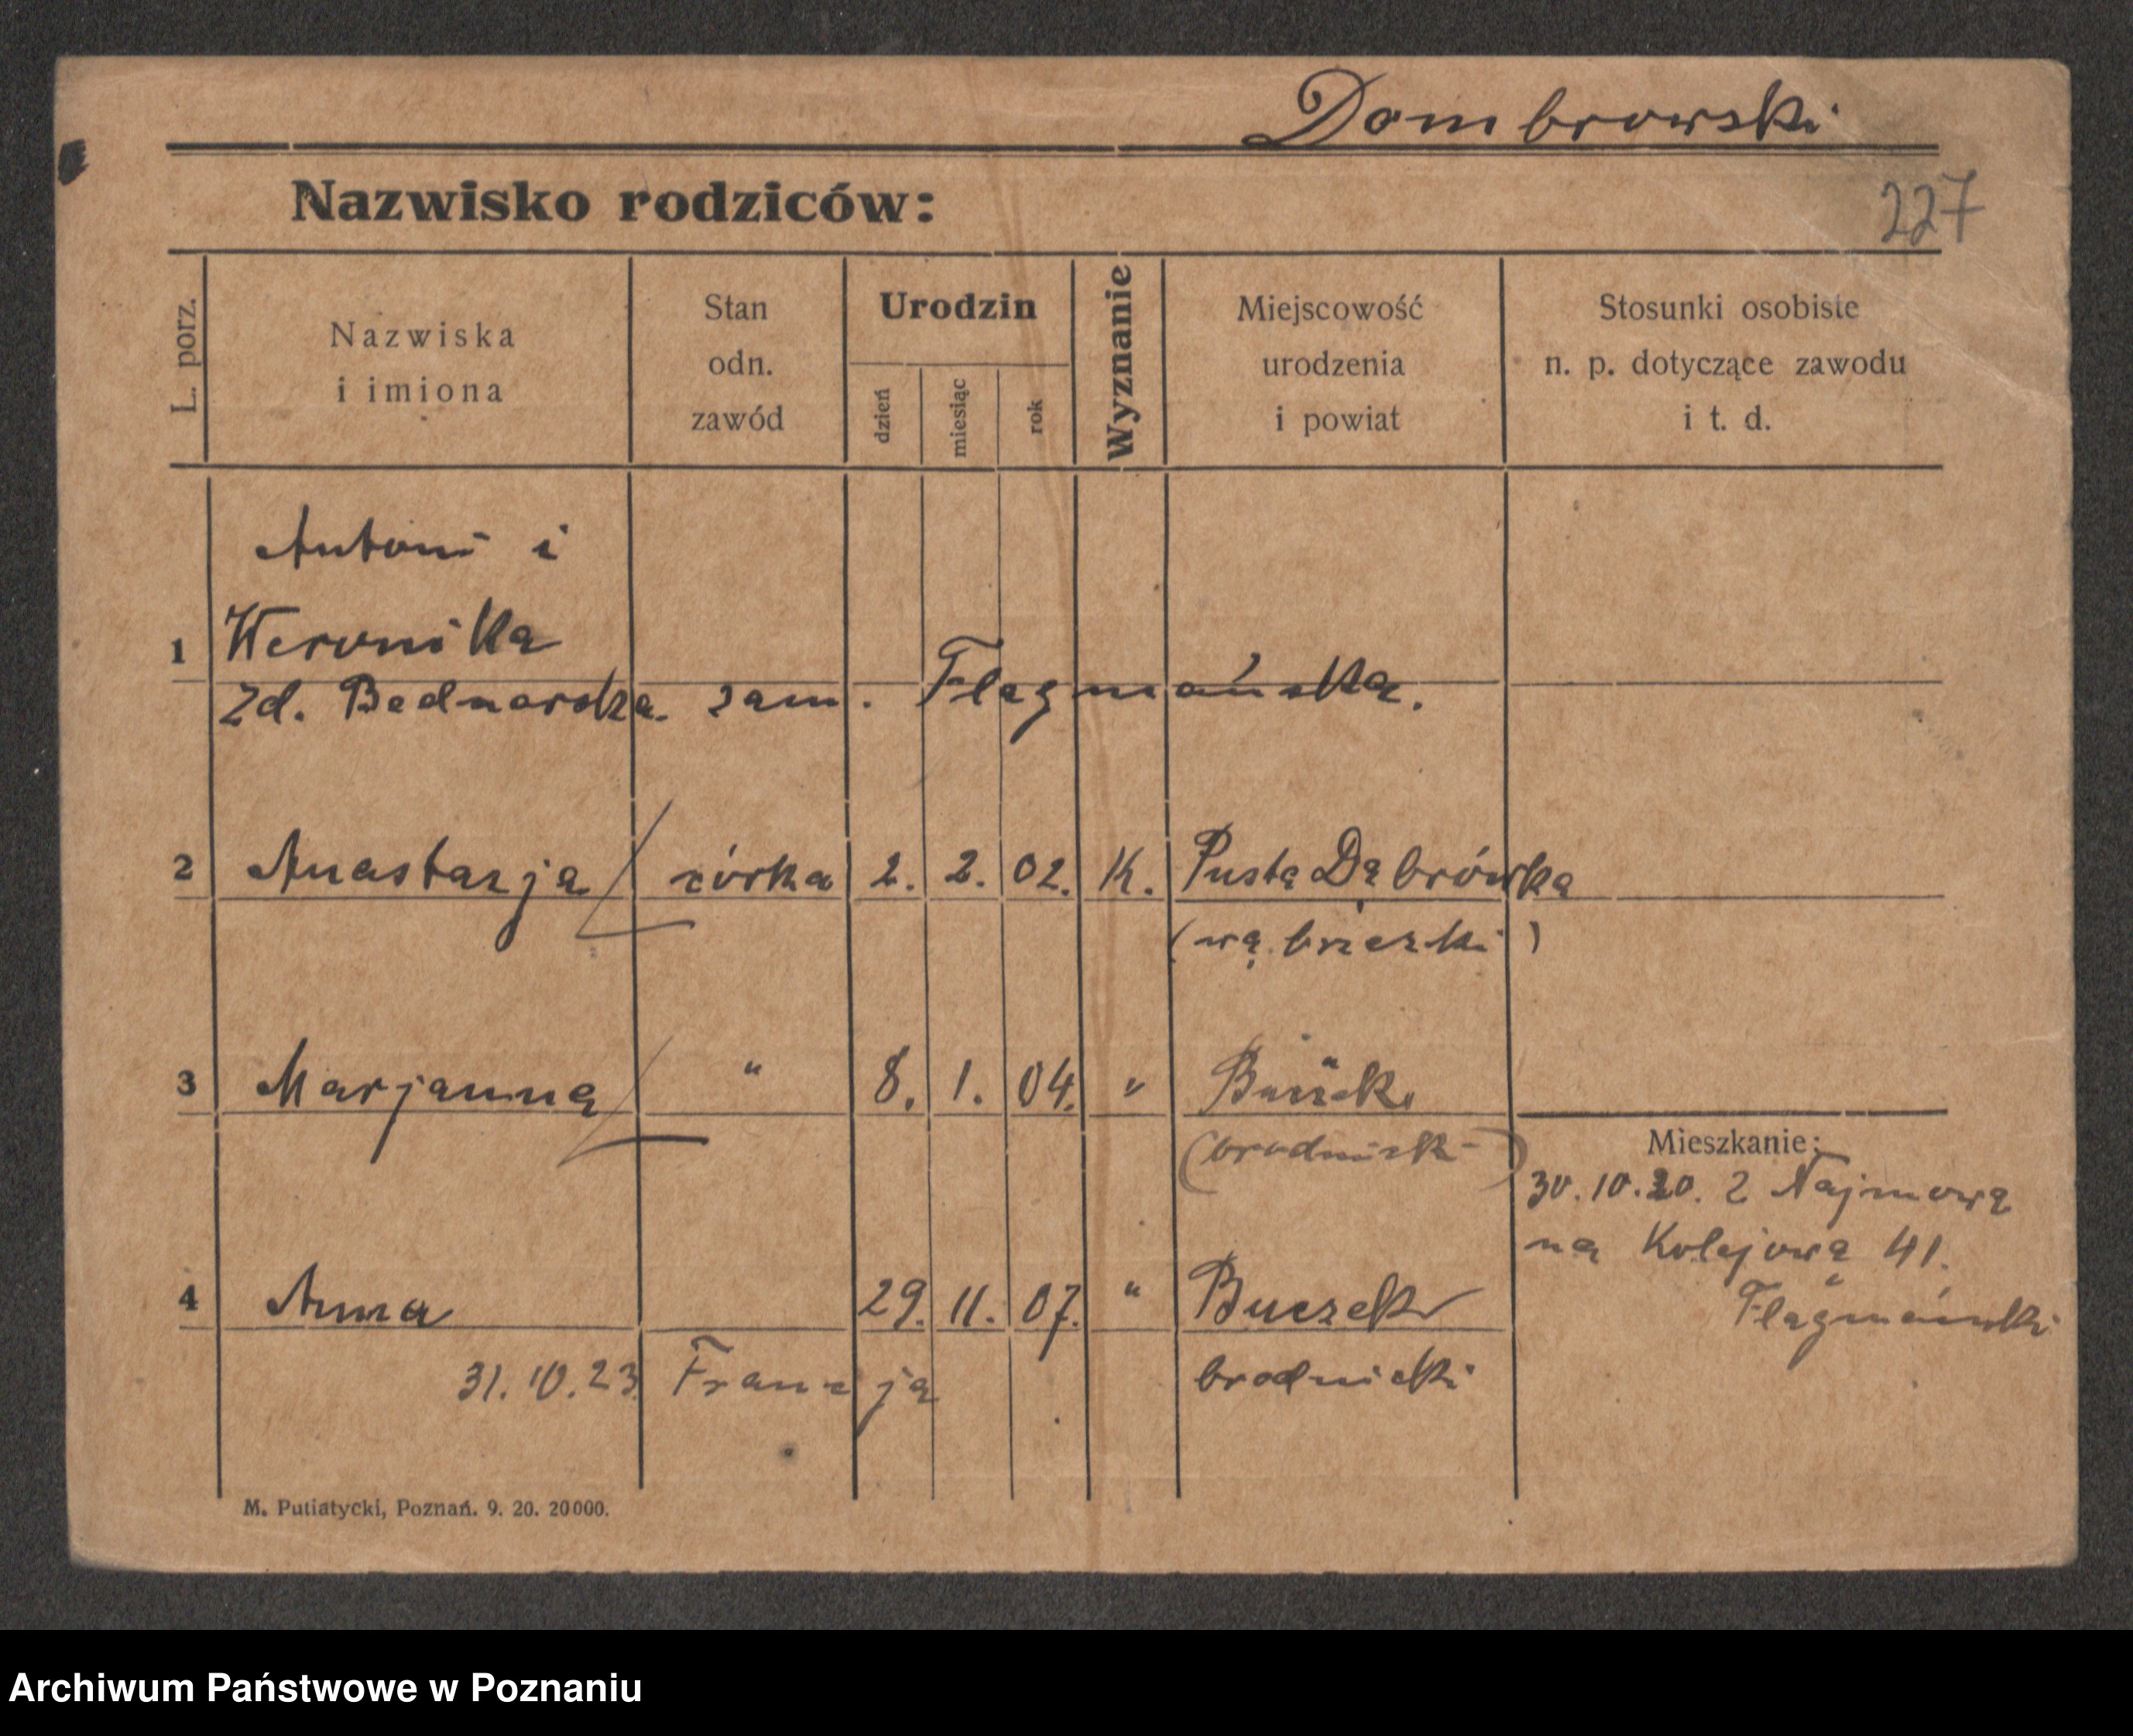 Dombrowski
Nazwisko rodziców:
227
L. porz.
Nazwiska
i imiona
Stan
odn.
zawód
Urodzin
dzień
miesiąc
rok
Wyznanie
Miejscowość
urodzenia
i powiat
Stosunki osobiste
n. p. dotyczące zawodu
i t. d.
Antoni i
1 Weronika
zd. Bednarska zam. Flegmańska.
2 Anastazja córka 2. 2. 02. K. Pusta Dąbrówka
(wąbrzezki)
3 Marjanna " 8. 1. 04. "
(brodnick-)
Mieszkanie:
30.10.20. z Najmową
na Kolejową 41.
Flegmański
4 Anna 29. 11. 07. " Buczek
31.10.23 Francja brodnicki
M. Putiatycki, Poznań. 9. 20. 20000.
Archiwum Państwowe w Poznaniu